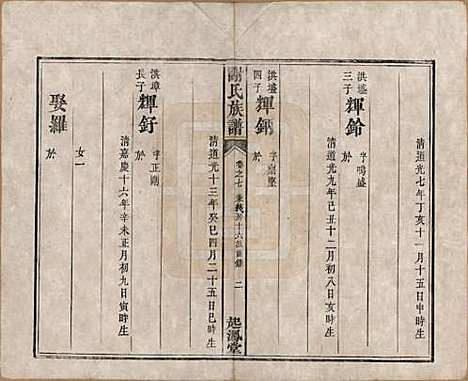 清道光七年丁亥十一月十五日申時生
洪盛三子
輝鈴
字鳴盛
於
清道光九年己丑十二月初八日亥時生
洪盛四子
輝鈵
於
謝氏族譜
卷之七
二
起鳳堂
清道光十三年癸巳四月二十五日巳時生
洪璋長子
輝釪
字正剛
於
清嘉慶十六年辛未正月初九日寅時生
娶羅
於
女一